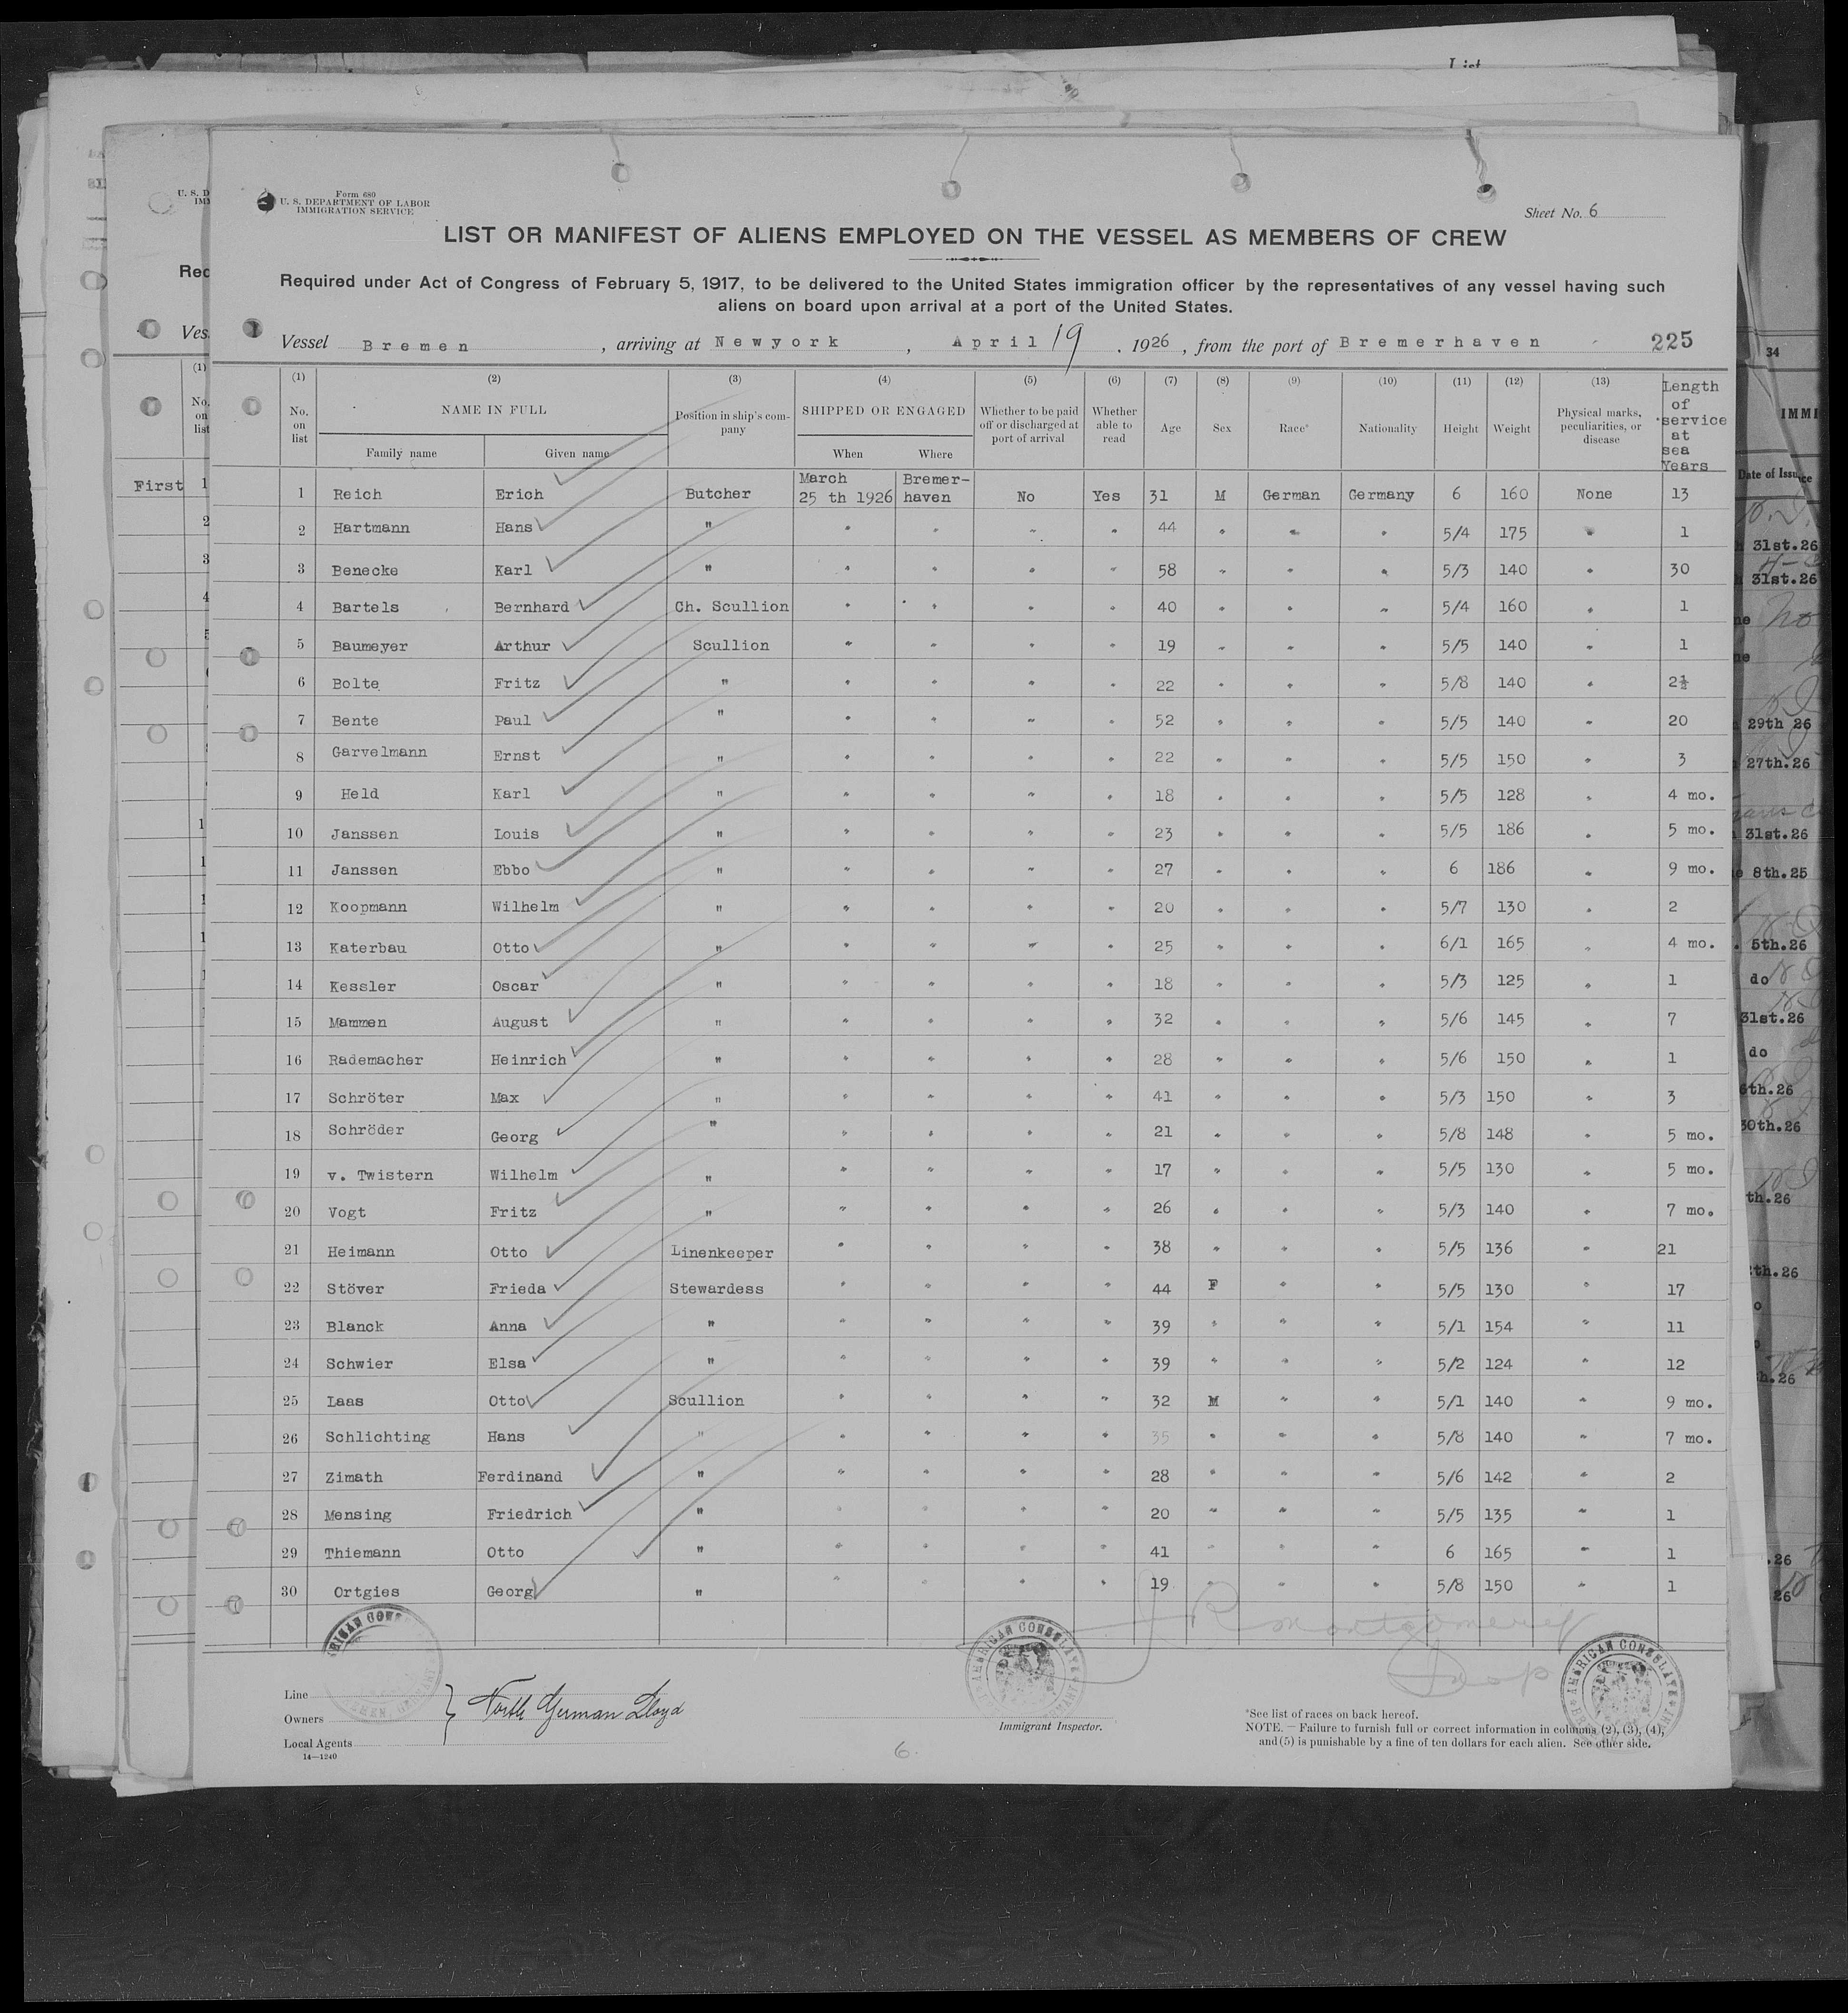 List
Form 680
U. S. DEPARTMENT OF LABOR
IMMIGRATION SERVICE
Sheet No. 6
LIST OR MANIFEST OF ALIENS EMPLOYED ON THE VESSEL AS MEMBERS OF CREW
Required under Act of Congress of February 5, 1917, to be delivered to the United States immigration officer by the representatives of any vessel having such
aliens on board upon arrival at a port of the United States.
Vessel Bremen, arriving at Newyork, April 19, 1926, from the port of Bremerhaven 225
(1) (2) (3) (4) (5) (6) (7) (8) (9) (10) (11) (12) (13) Length of service at sea Years
No. on list NAME IN FULL Position in ship's company SHIPPED OR ENGAGED Whether to be paid off or discharged at port of arrival Whether able to read Age Sex Race* Nationality Height Weight Physical marks, peculiarities, or disease
Family name Given name When Where
1 Reich Erich Butcher March 25 th 1926 Bremerhaven No Yes 31 M German Germany 6 160 None 13
2 Hartmann Hans " " " " " 44 " " " 5/4 175 " 1
3 Benecke Karl " " " " " 58 " " " 5/3 140 " 30
4 Bartels Bernhard Ch. Scullion " " " " 40 " " " 5/4 160 " 1
5 Baumeyer Arthur Scullion " " " " 19 " " " 5/5 140 " 1
6 Bolte Fritz " " " " " 22 " " " 5/8 140 " 2½
7 Bente Paul " " " " " 52 " " " 5/5 140 " 20
8 Garvelmann Ernst " " " " " 22 " " " 5/5 150 " 3
9 Held Karl " " " " " 18 " " " 5/5 128 " 4 mo.
10 Janssen Louis " " " " " 23 " " " 5/5 186 " 5 mo.
11 Janssen Ebbo " " " " " 27 " " " 6 186 " 9 mo.
12 Koopmann Wilhelm " " " " " 20 " " " 5/7 130 " 2
13 Katerbau Otto " " " " " 25 " " " 6/1 165 " 4 mo.
14 Kessler Oscar " " " " " 18 " " " 5/3 125 " 1
15 Mammen August " " " " " 32 " " " 5/6 145 " 7
16 Rademacher Heinrich " " " " " 28 " " " 5/6 150 " 1
17 Schröter Max " " " " " 41 " " " 5/3 150 " 3
18 Schröder Georg " " " " " 21 " " " 5/8 148 " 5 mo.
19 v. Twistern Wilhelm " " " " " 17 " " " 5/5 130 " 5 mo.
20 Vogt Fritz " " " " " 26 " " " 5/3 140 " 7 mo.
21 Heimann Otto Linenkeeper " " " " 38 " " " 5/5 136 " 21
22 Stöver Frieda Stewardess " " " " 44 F " " 5/5 130 " 17
23 Blanck Anna " " " " " 39 " " " 5/1 154 " 11
24 Schwier Elsa " " " " " 39 " " " 5/2 124 " 12
25 Laas Otto Scullion " " " " 32 M " " 5/1 140 " 9 mo.
26 Schlichting Hans " " " " " 35 " " " 5/8 140 " 7 mo.
27 Zimath Ferdinand " " " " " 28 " " " 5/6 142 " 2
28 Mensing Friedrich " " " " " 20 " " " 5/5 135 " 1
29 Thiemann Otto " " " " " 41 " " " 6 165 " 1
30 Ortgies Georg " " " " " 19 " " " 5/8 150 " 1
AMERICAN CONSULATE
Line
Owners
Local Agents
North German Lloyd
14—1240
Immigrant Inspector.
6.
*See list of races on back hereof.
NOTE.—Failure to furnish full or correct information in columns (2), (3), (4),
and (5) is punishable by a fine of ten dollars for each alien. See other side.
U. S. D
IMM
Rec
Ves
(1)
No. on list
First 1
34
IMMI
Date of Issuce
31st.26
31st.26
29th 26
27th.26
31st.26
8th.25
5th.26
do
31st.26
do
6th.26
30th.26
th.26
th.26